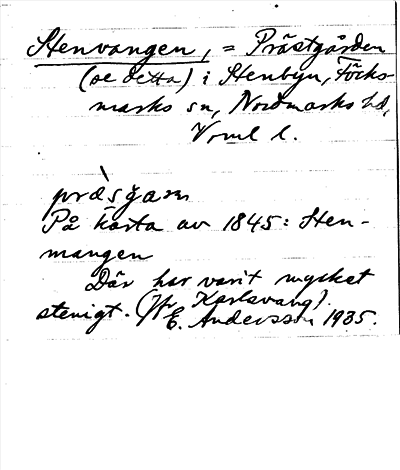 Stenvangen, = Prästgården
(se detta) i Stenbyn, Töcks-
marks sn, Nordmarks hd,
Vrml l.
præ̀sgaɳ
På karta av 1845: Sten-
mangen
Där har varit mycket
stenigt. (Jfr Karlsvang).
E. Andersson 1935.